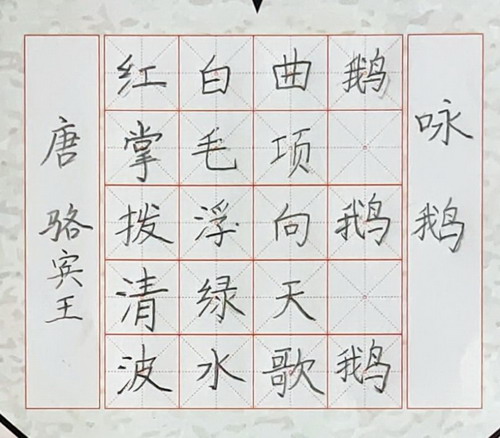 咏鹅
鹅 鹅 鹅
曲项向天歌
白毛浮绿水
红掌拨清波
唐 骆宾王